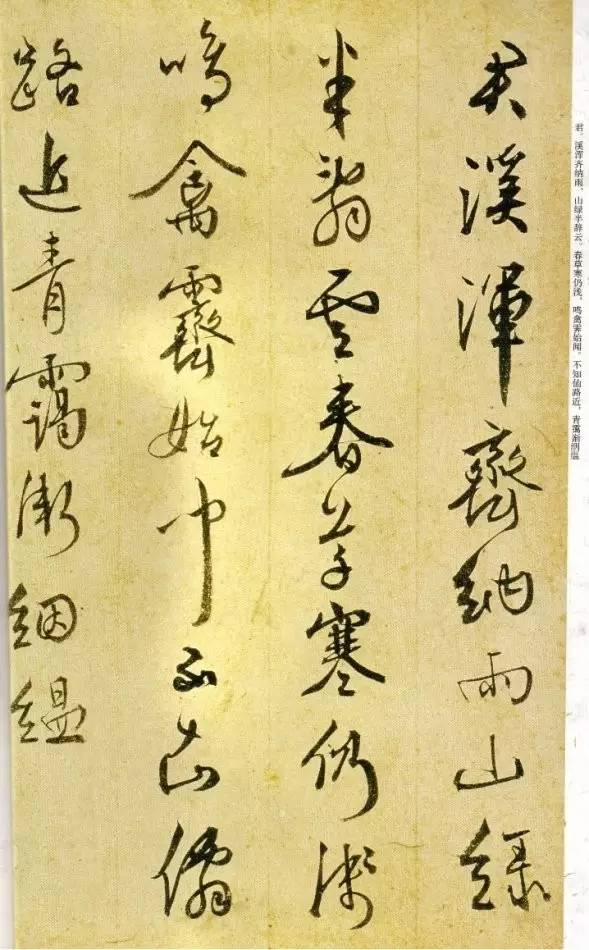 君。溪浑齐纳雨，山绿半辞云。春草寒仍浅，鸣禽霁始闻。不知仙路近，青霭渐絪缊
君溪渾齊納雨山綠
半辭雲春草寒仍淺
鳴禽霽始聞不知僊
路近青靄漸絪縕